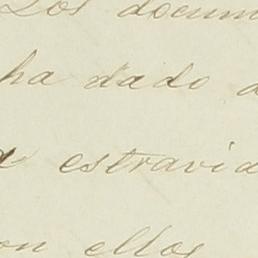 Los docum
ha dado a
estravia
on ellos